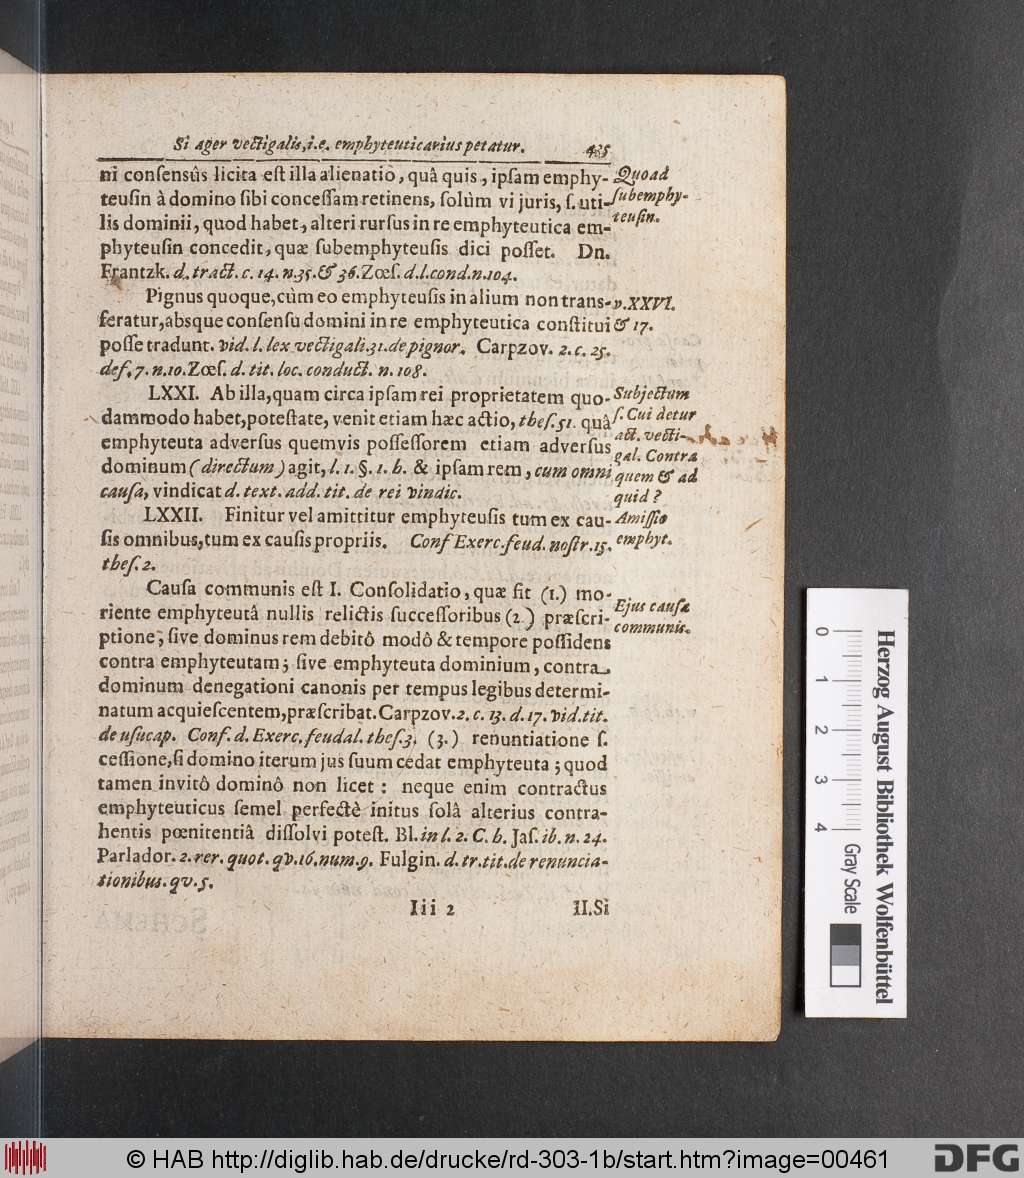 Si ager vectigalis, i.e. emphyteuticarius petatur. 435
ni consensûs licita est illa alienatio, quâ quis, ipsam emphy-
teusin à domino sibi concessam retinens, solùm vi juris, s. uti-
lis dominii, quod habet, alteri rursus in re emphyteutica em-
phyteusin concedit, quæ subemphyteusis dici posset. Dn.
Frantzk. d. tract. c. 14. n. 35. & 36. Zœs. d. l. cond. n. 104.
Quoad
subemphy-
teusin.
Pignus quoque, cùm eo emphyteusis in alium non trans-
feratur, absque consensu domini in re emphyteutica constitui
posse tradunt. vid. l. lex vectigali. 31. de pignor. Carpzov. 2. c. 25.
def. 7. n. 10. Zœs. d. tit. loc. conduct. n. 108.
v. XXVI.
& 17.
LXXI. Ab illa, quam circa ipsam rei proprietatem quo-
dammodo habet, potestate, venit etiam hæc actio, thes. 51. quâ
emphyteuta adversus quemvis possessorem etiam adversus
dominum (directum) agit, l. 1. §. 1. h. & ipsam rem, cum omni
causa, vindicat d. text. add. tit. de rei vindic.
Subjectum
s. Cui detur
act. vecti-
gal. Contra
quem & ad
quid?
LXXII. Finitur vel amittitur emphyteusis tum ex cau-
sis omnibus, tum ex causis propriis. Conf Exerc. feud. nostr. 15.
thes. 2.
Amissio
emphyt.
Causa communis est I. Consolidatio, quæ fit (1.) mo-
riente emphyteutâ nullis relictis successoribus (2.) præscri-
ptione, sive dominus rem debitô modô & tempore possidens
contra emphyteutam; sive emphyteuta dominium, contra
dominum denegationi canonis per tempus legibus determi-
natum acquiescentem, præscribat. Carpzov. 2. c. 13. d. 17. vid. tit.
de usucap. Conf. d. Exerc. feudal. thes. 3. (3.) renuntiatione s.
cessione, si domino iterum jus suum cedat emphyteuta; quod
tamen invitô dominô non licet: neque enim contractus
emphyteuticus semel perfectè initus solâ alterius contra-
hentis pœnitentiâ dissolvi potest. Bl. in l. 2. C. h. Jas. ib. n. 24.
Parlador. 2. rer. quot. qv. 16. num. 9. Fulgin. d. tr. tit. de renuncia-
tionibus. qv. 5.
Ejus causæ
communis.
Iii 2 II. Si
Herzog August Bibliothek Wolfenbüttel
0 1 2 3 4
Gray Scale
© HAB http://diglib.hab.de/drucke/rd-303-1b/start.htm?image=00461
DFG